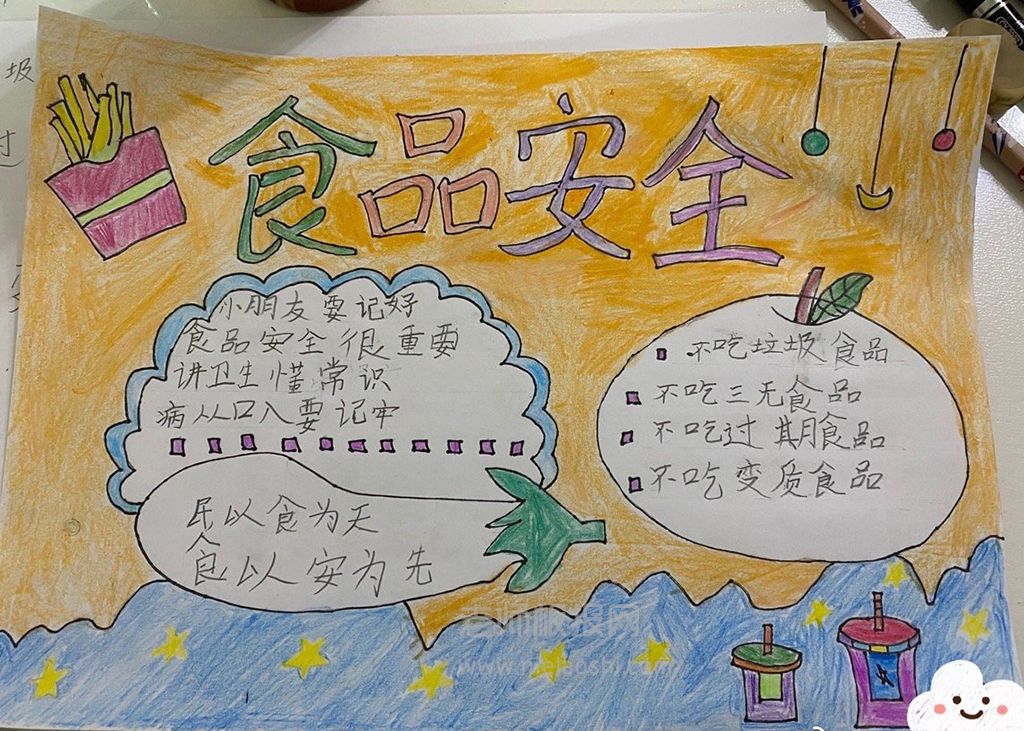 食品安全
小朋友要记好
食品安全很重要
讲卫生懂常识
病从口入要记牢
民以食为天
食以安为先
不吃垃圾食品
不吃三无食品
不吃过期食品
不吃变质食品
圾
过
老师板报网